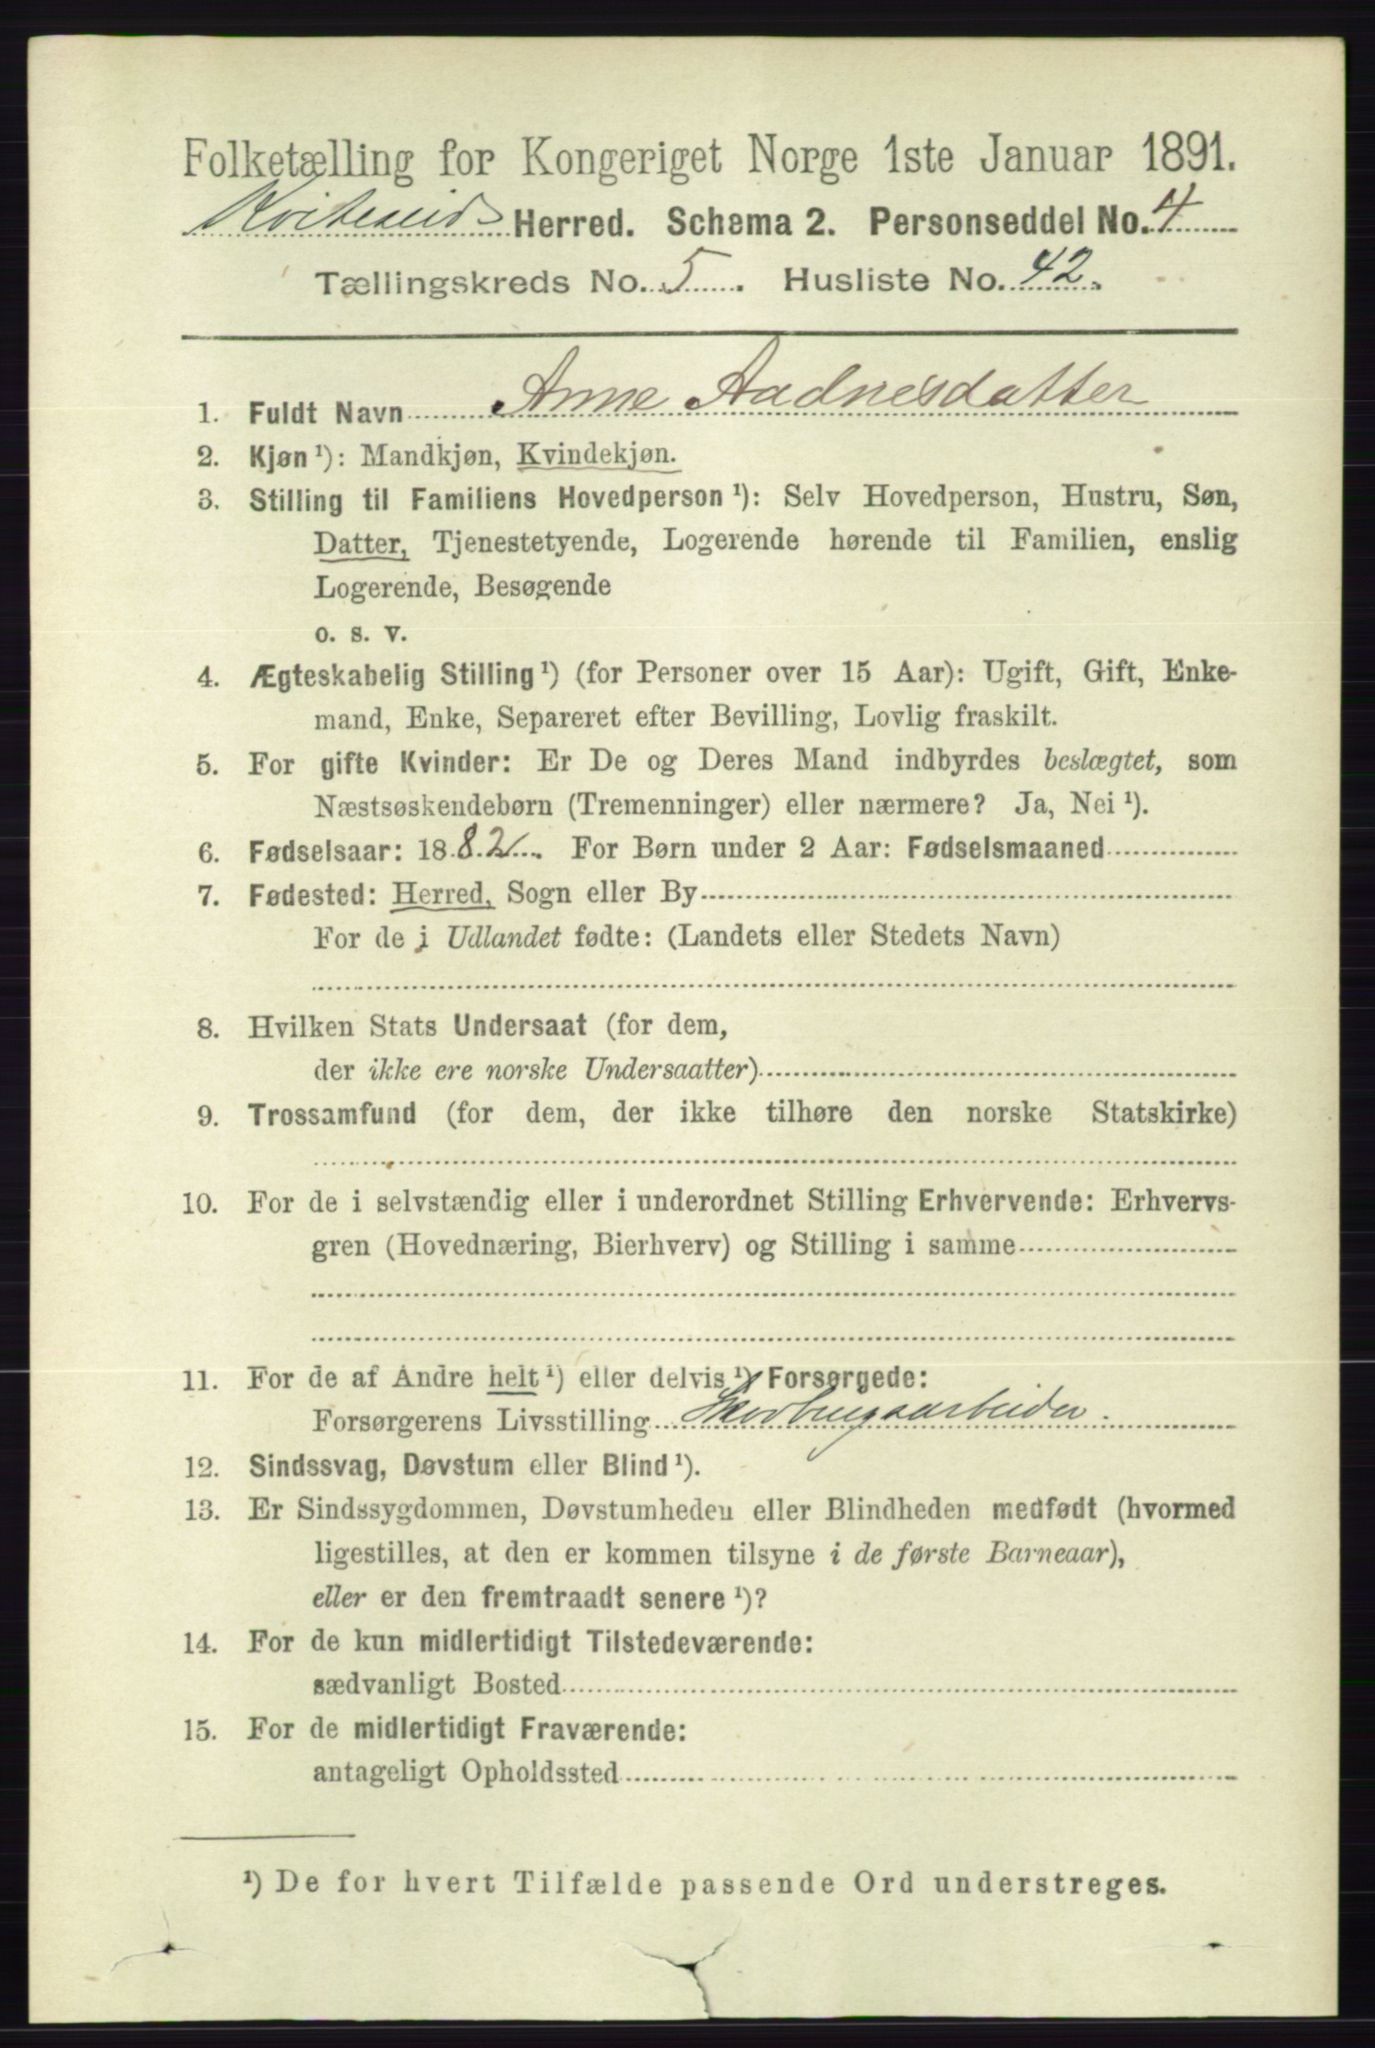 Folketælling for Kongeriget Norge 1ste Januar 1891.
Kviteseid Herred. Schema 2. Personseddel No. 4
Tællingskreds No. 5. Husliste No. 42.
1. Fuldt Navn Anne Aadnesdatter
2. Kjøn ¹): Mandkjøn, Kvindekjøn.
3. Stilling til Familiens Hovedperson ¹): Selv Hovedperson, Hustru, Søn,
Datter, Tjenestetyende, Logerende hørende til Familien, enslig
Logerende, Besøgende
o. s. v.
4. Ægteskabelig Stilling ¹) (for Personer over 15 Aar): Ugift, Gift, Enke-
mand, Enke, Separeret efter Bevilling, Lovlig fraskilt.
5. For gifte Kvinder: Er De og Deres Mand indbyrdes beslægtet, som
Næstsøskendebørn (Tremenninger) eller nærmere? Ja, Nei ¹).
6. Fødselsaar: 1882. For Børn under 2 Aar: Fødselsmaaned
7. Fødested: Herred, Sogn eller By
For de i Udlandet fødte: (Landets eller Stedets Navn)
8. Hvilken Stats Undersaat (for dem,
der ikke ere norske Undersaatter)
9. Trossamfund (for dem, der ikke tilhøre den norske Statskirke)
10. For de i selvstændig eller i underordnet Stilling Erhvervende: Erhvervs-
gren (Hovednæring, Bierhverv) og Stilling i samme
11. For de af Andre helt ¹) eller delvis ¹) Forsørgede:
Forsørgerens Livsstilling Skovbrugsarbeider.
12. Sindssvag, Døvstum eller Blind ¹).
13. Er Sindssygdommen, Døvstumheden eller Blindheden medfødt (hvormed
ligestilles, at den er kommen tilsyne i de første Barneaar),
eller er den fremtraadt senere ¹)?
14. For de kun midlertidigt Tilstedeværende:
sædvanligt Bosted
15. For de midlertidigt Fraværende:
antageligt Opholdssted
¹) De for hvert Tilfælde passende Ord understreges.